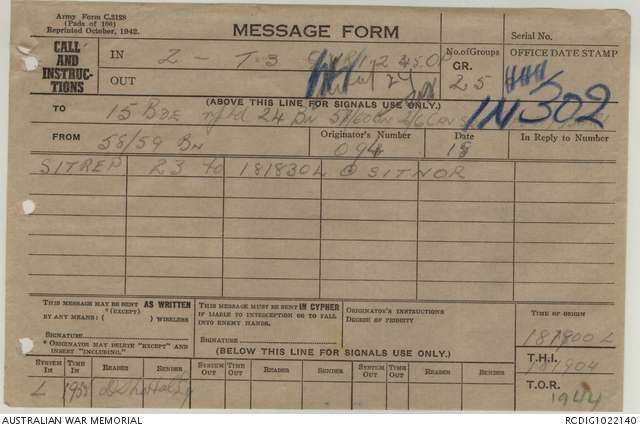 Army Form C.2128
(Pads of 100)
Reprinted October, 1942.
MESSAGE FORM
Serial No.
CALL AND INSTRUCTIONS
IN
Z - T-3
No. of Groups
GR.
25
OFFICE DATE STAMP
OUT
IN 302
(ABOVE THIS LINE FOR SIGNALS USE ONLY.)
TO
15 BDE rftd 24 BN 57/60 BN
FROM
58/59 BN
Originator's Number
094
Date
18
In Reply to Number
SITREP 23 to 181830L @ SITNOR
THIS MESSAGE MAY BE SENT AS WRITTEN
*(EXCEPT)
BY ANY MEANS ( ) WIRELESS
SIGNATURE
* ORIGINATOR MAY DELETE "EXCEPT" AND INSERT "INCLUDING."
THIS MESSAGE MUST BE SENT IN CYPHER
IF LIABLE TO INTERCEPTION OR TO FALL INTO ENEMY HANDS.
SIGNATURE
ORIGINATOR'S INSTRUCTIONS
DEGREE OF PRIORITY
TIME OF ORIGIN
181900 L
(BELOW THIS LINE FOR SIGNALS USE ONLY.)
T.H.I.
181904
SYSTEM IN TIME IN READER SENDER SYSTEM OUT TIME OUT READER SENDER SYSTEM OUT TIME OUT READER SENDER
T.O.R.
L
1944
AUSTRALIAN WAR MEMORIAL
RCDIG1022140